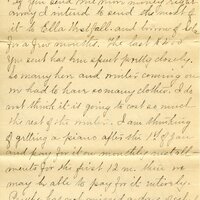 If you send me more money right
away I intend to send the most of
it to Ella Westfall and borrow of her
for a few months. The last $2.00
You sent has been spent partly closely.
So many here and winter coming on
we had to have so many clothes. I do
not think it is going to cost so much
the rest of the winter. I am thinking
of getting a piano after the 1st of Jan
and pay for it on monthly install
ments for the first 12 m. then we
may be able to pay for it entirely.